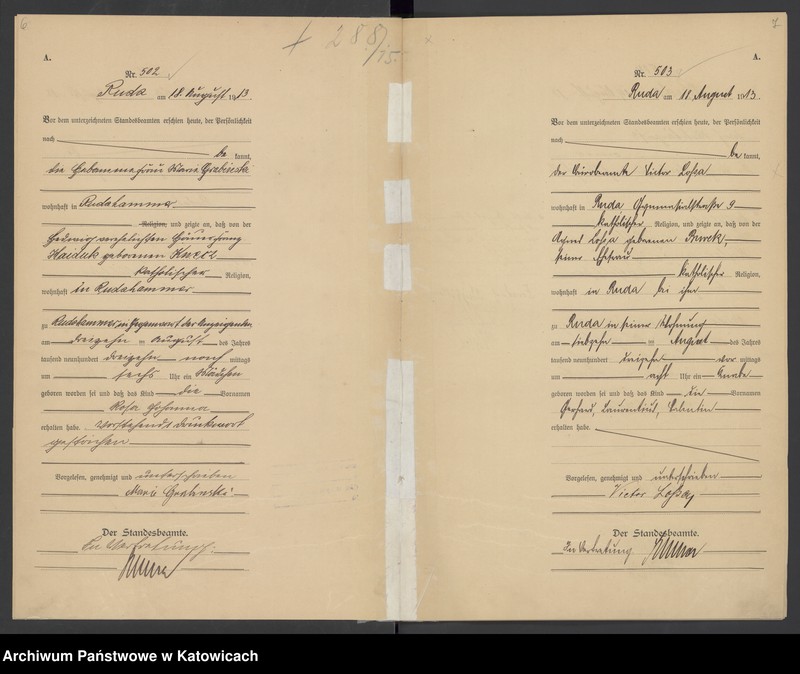 6
+ 288/15.
A.
Nr. 502
Ruda am 18. August 1913.
Vor dem unterzeichneten Standesbeamten erschien heute, der Persönlichkeit
nach
be kannt,
die Hebammefrau Marie Grabinski
wohnhaft in Rudahammer
Religion, und zeigte an, daß von der
Hedwig verehelichten
Haiduk geborenen
katholischer Religion,
wohnhaft in Rudahammer
zu Rudahammer in Gegenwart der Anzeigenden
am dreizehn ten August des Jahres
tausend neunhundert dreizehn nach mittags
um sechs Uhr ein Mädchen
geboren worden sei und daß das Kind die Vornamen
Rosa Johanna
erhalten habe. Vorstehend 1 Druckwort
gestrichen
Vorgelesen, genehmigt und unterschrieben
Marie Grabinski
Der Standesbeamte.
In Vertretung.
7
A.
Nr. 503
Ruda am 18. August 1913.
Vor dem unterzeichneten Standesbeamten erschien heute, der Persönlichkeit
nach
be kannt,
der Bürobeamte Victor Lossa
wohnhaft in Ruda 9
katholischer Religion, und zeigte an, daß von der
Agnes Lossa geborenen
seiner Ehefrau
katholischer Religion,
wohnhaft in Ruda bei ihm
zu Ruda in seiner Wohnung
am August des Jahres
tausend neunhundert dreizehn vor mittags
um acht Uhr ein Knabe
geboren worden sei und daß das Kind die Vornamen
Gerhard, Valentin
erhalten habe.
Vorgelesen, genehmigt und unterschrieben
Victor Lossa
Der Standesbeamte.
In Vertretung
Archiwum Państwowe w Katowicach